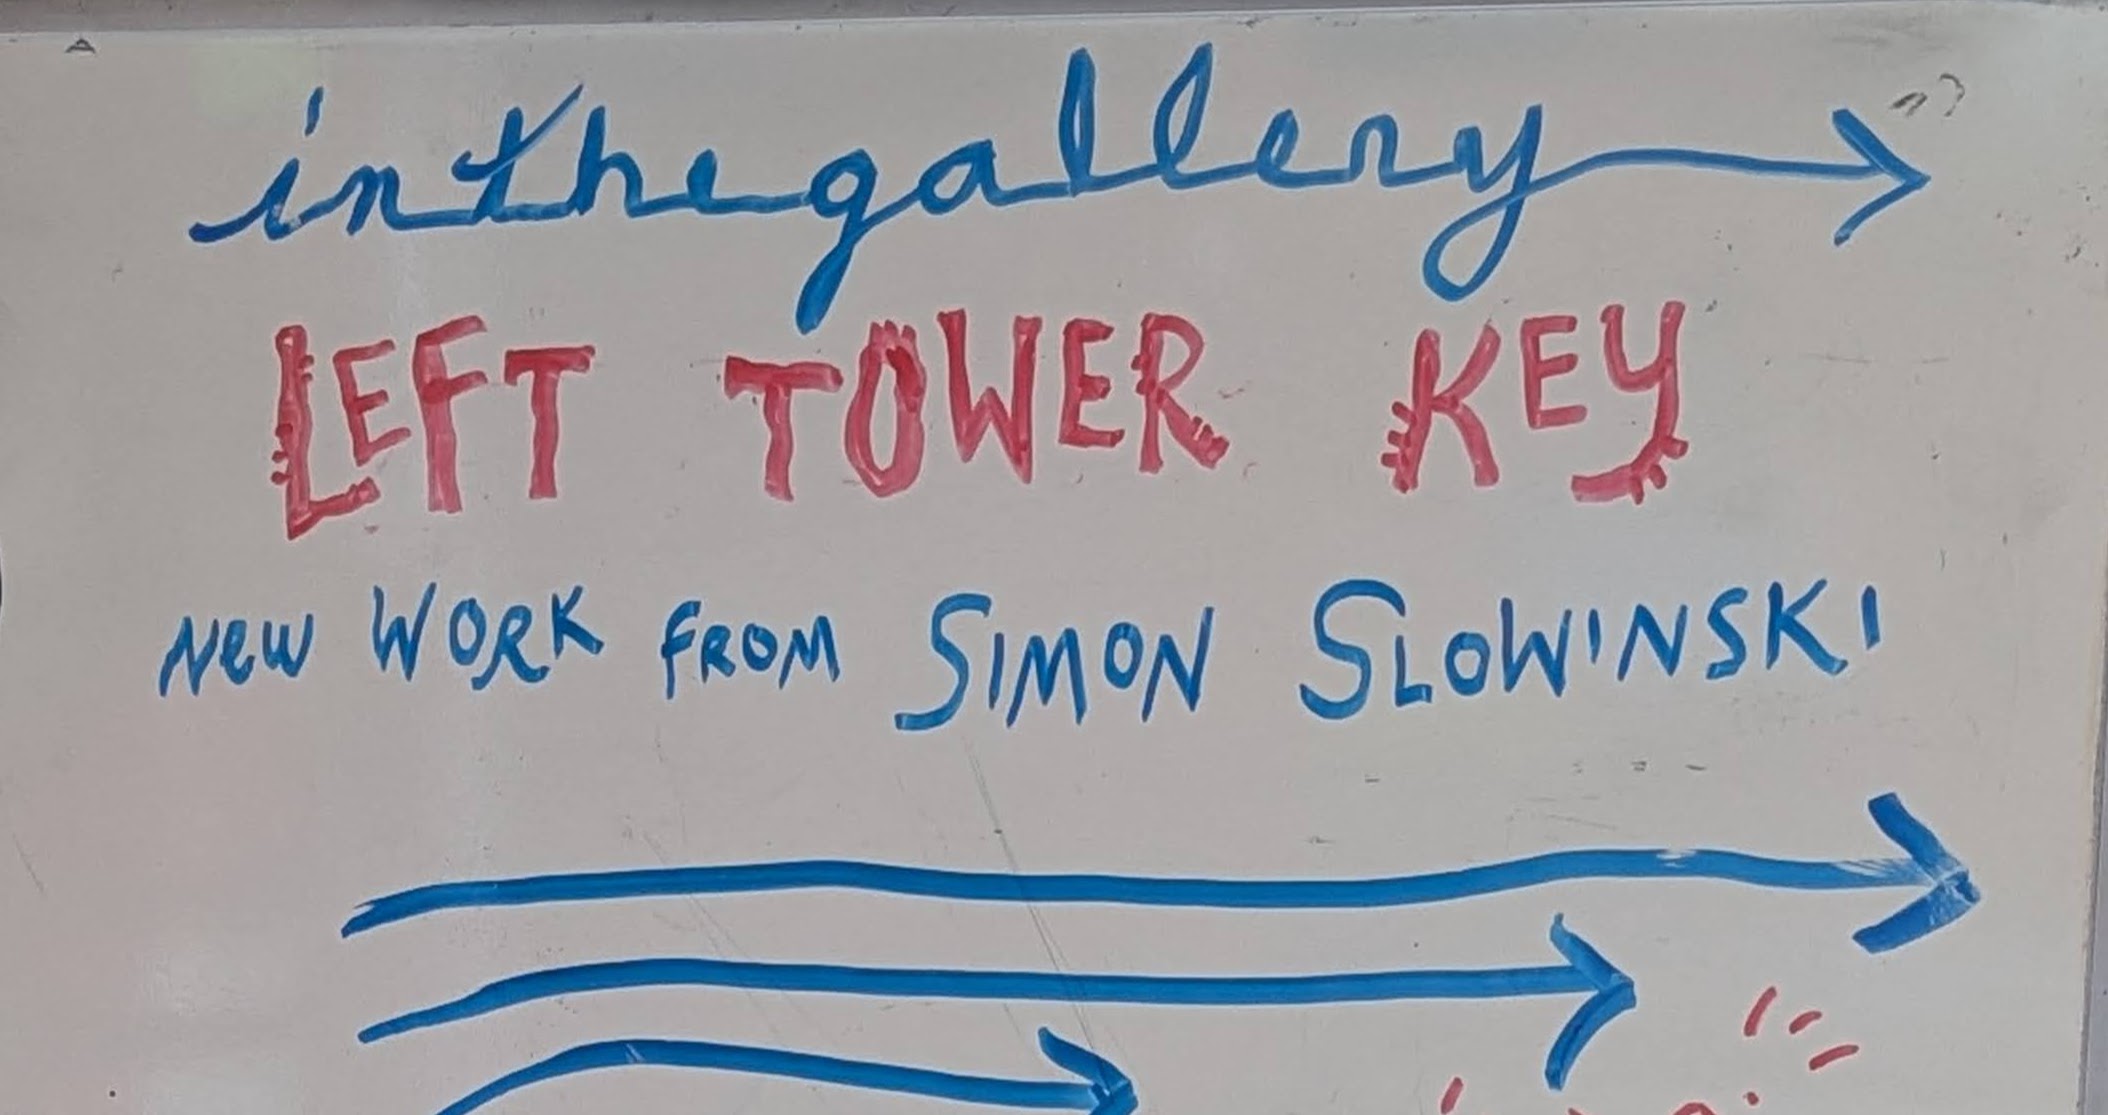 in the gallery
LEFT TOWER KEY
NEW WORK FROM SIMON SLOWINSKI